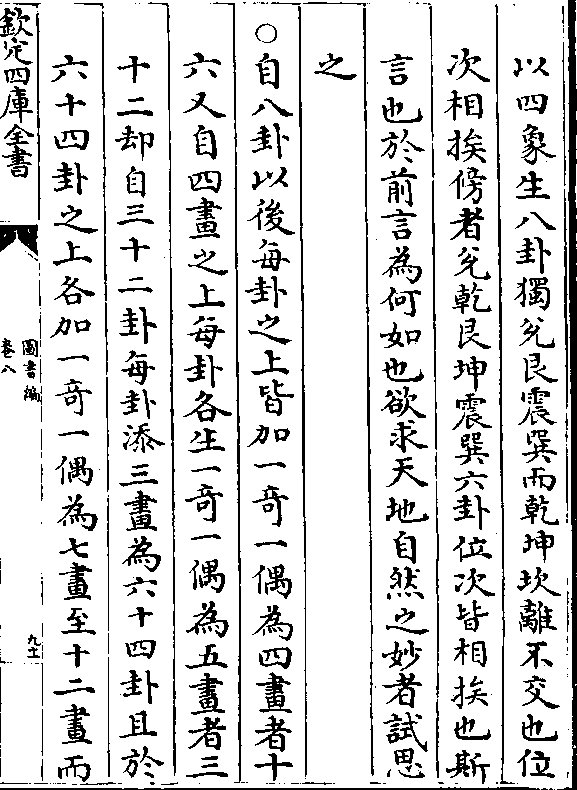 以四象生八卦獨兊艮震巽而乾坤坎離不交也位
次相挨傍者兊乾艮坤震巽六卦位次皆相挨也斯
言也於前言為何如也欲求天地自然之妙者試思
之
○自八卦以後每卦之上皆加一奇一偶為四畫者十
六又自四畫之上每卦各生一奇一偶為五畫者三
十二却自三十二卦每卦添三畫為六十四卦且於
六十四卦之上各加一奇一偶為七畫至十二畫而
欽定四庫全書
圖書編
卷八